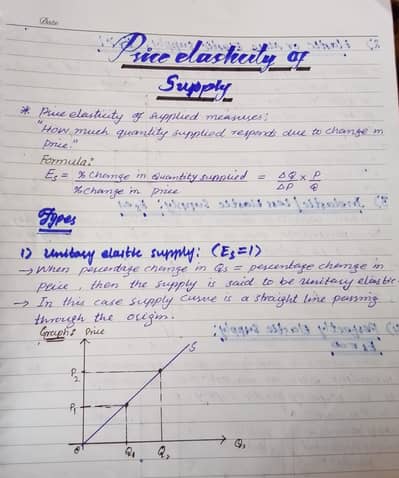 Date
Price elasticity of
Supply
* Price elasticity of supplied measures:
"How much quantity supplied responds due to change in
price."
Formula:
Es = % change in quantity supplied / % change in price = ΔQ/ΔP × P/Q
Types
1) Unitary elastic supply: (Es=1)
→ When percentage change in Qs = percentage change in
price, then the supply is said to be unitary elastic.
→ In this case supply curve is a straight line passing
through the origin.
Graph: Price
S
P2
P1
0
Q1 Q2 Qs